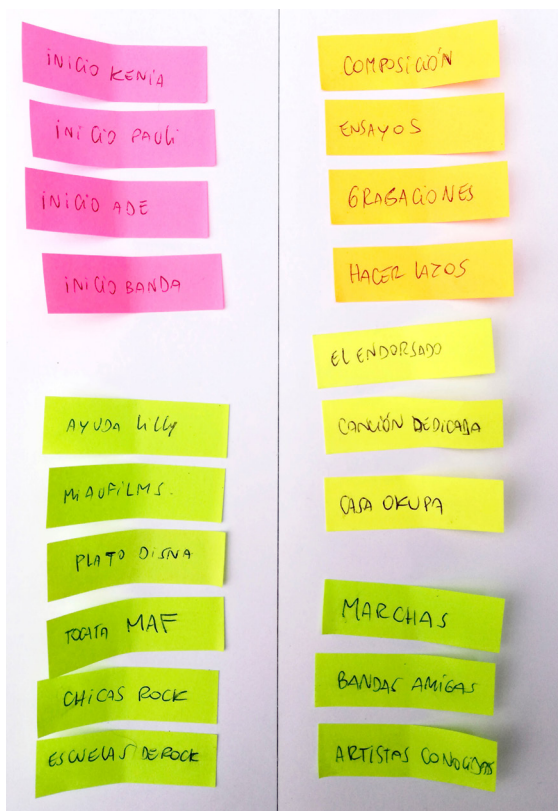 INICIO KENIA
INICIO PAULI
INICIO ADE
INICIO BANDA
AYUDA Lilly
MIAUFILMS.
PLATO DISNA
TOCATA MAF
CHICAS ROCK
ESCUELAS DE ROCK
COMPOSICIÓN
ENSAYOS
GRABACIONES
HACER LAZOS
EL ENDORSADO
CANCIÓN DEDICADA
CASA OKUPA
MARCHAS
BANDAS AMIGAS
ARTISTAS CONOCIDAS